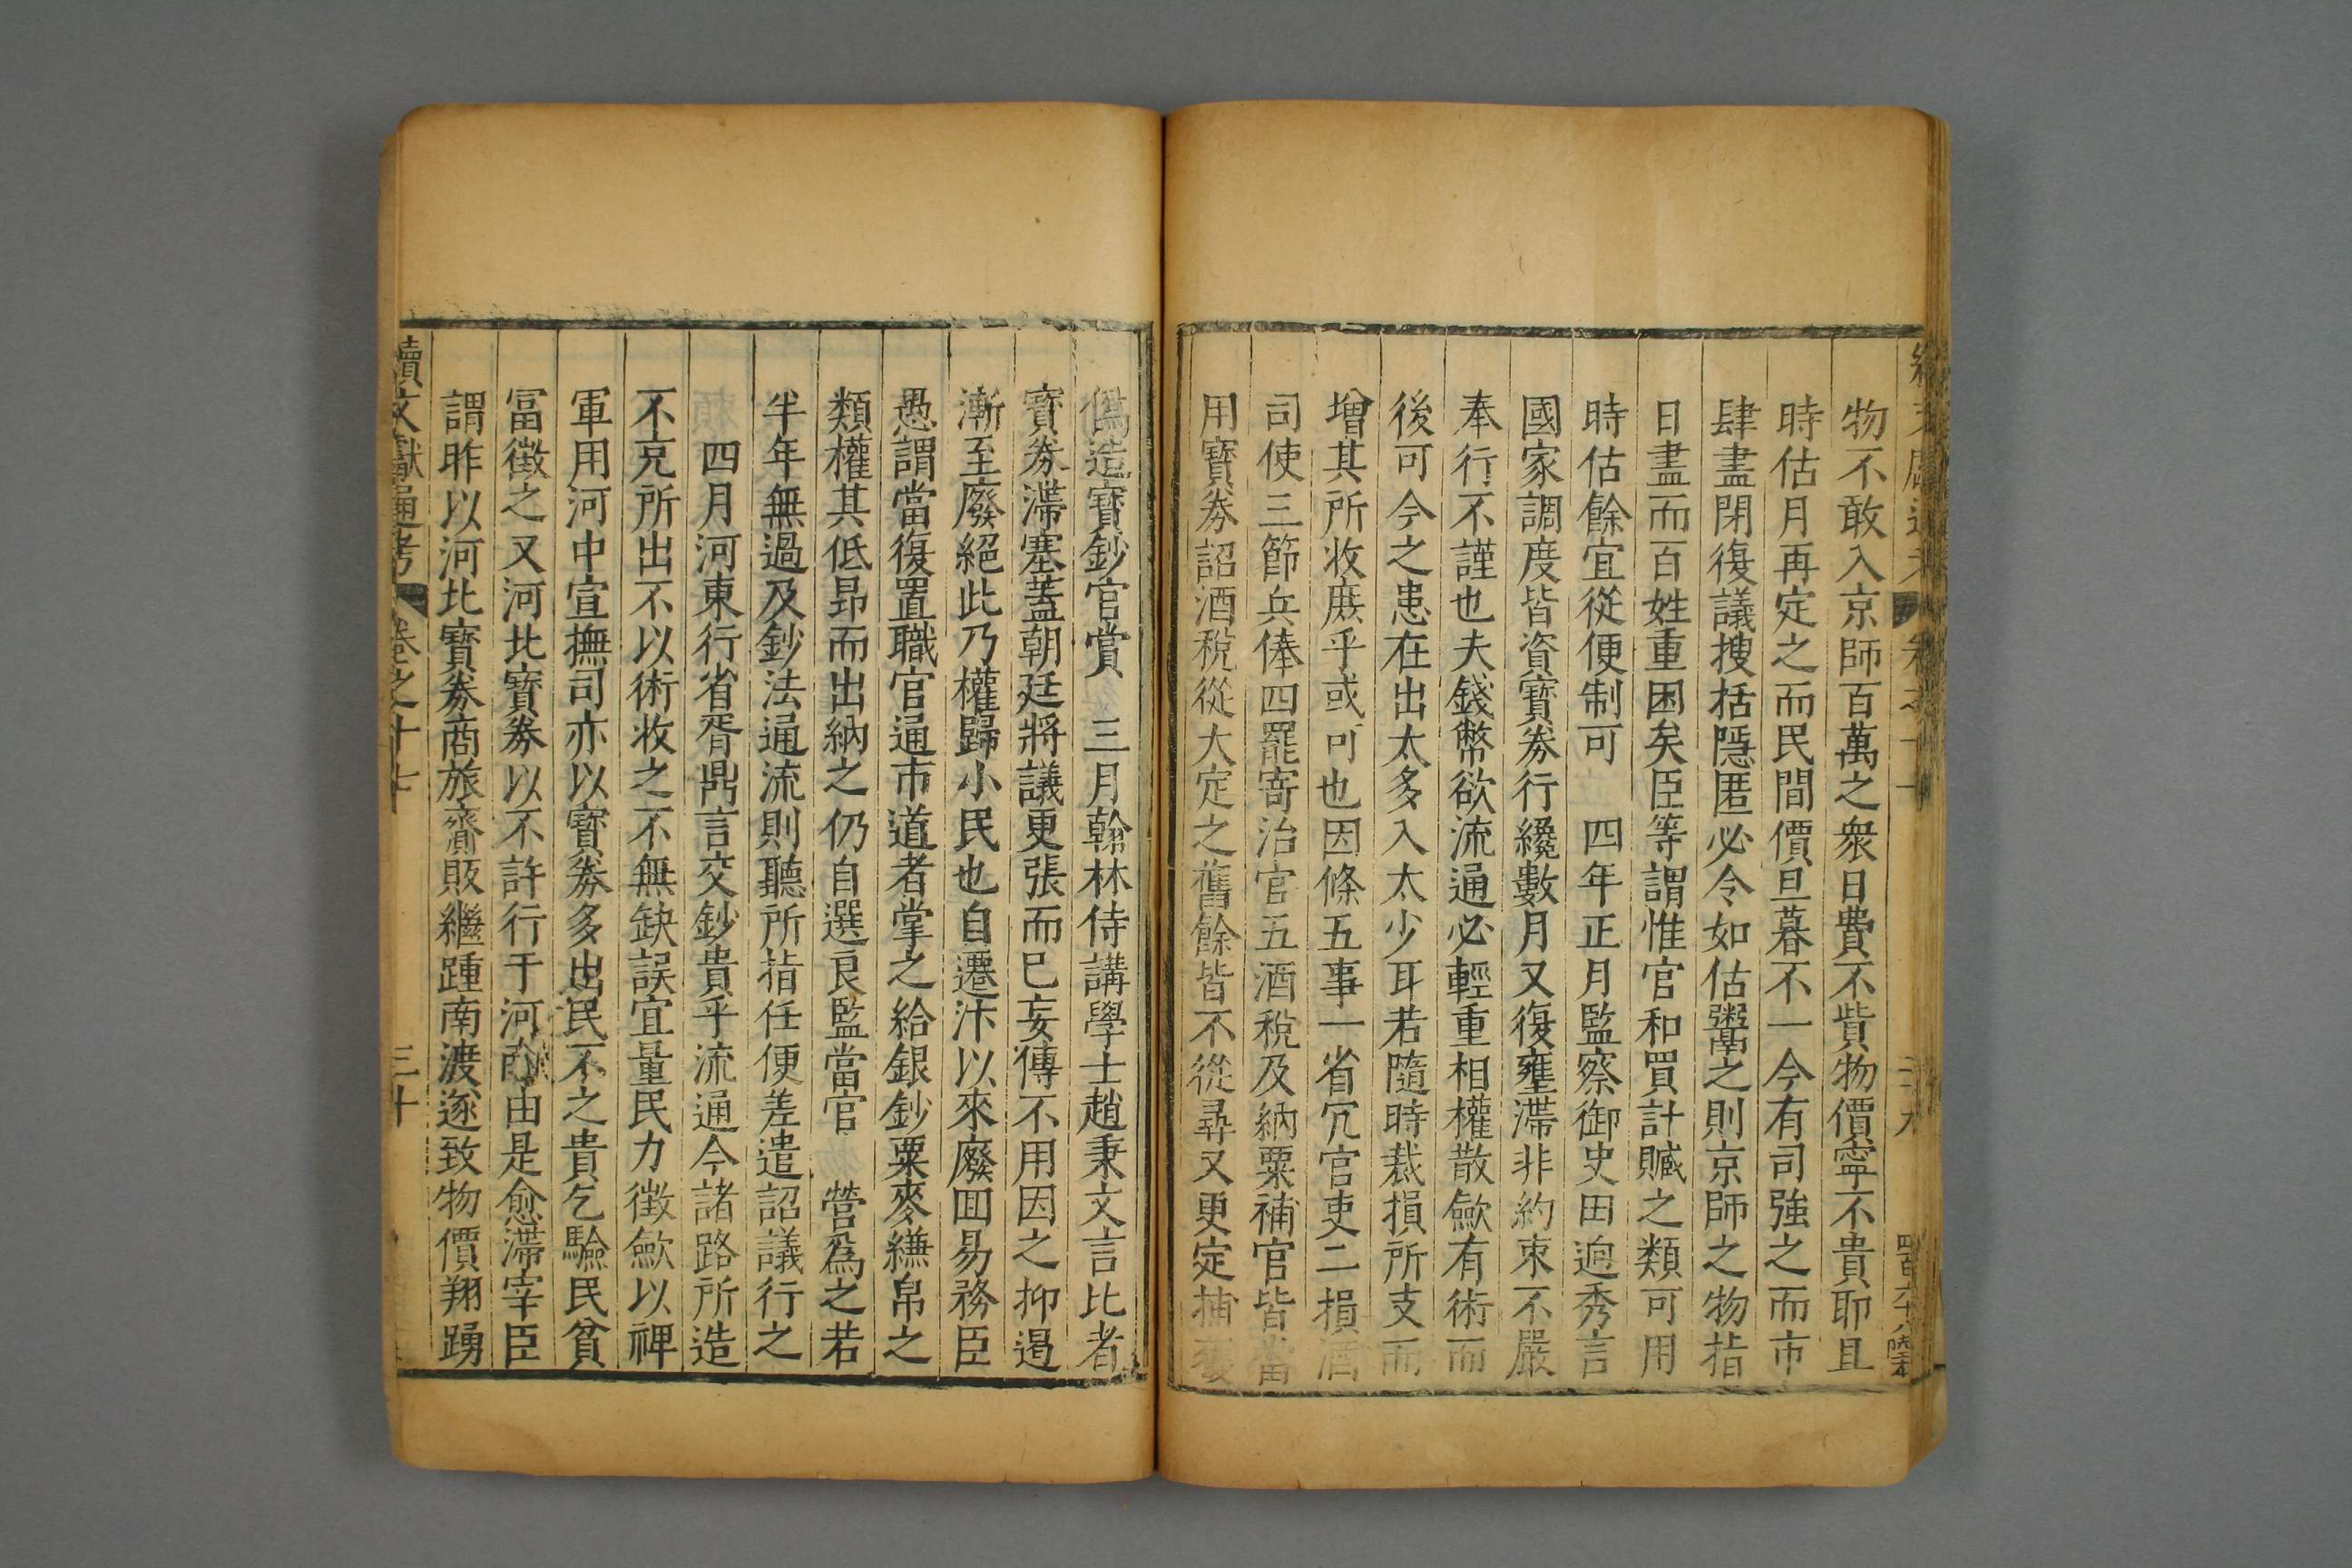 物不敢入京師百萬之衆日費不貲物價寧不貴耶且
時估月再定之而民間價旦暮不一今有司強之而市
肆盡閉復議搜括隱匿必令如估鬻之則京師之物指
日盡而百姓重困矣臣等謂惟官和買計贓之類可用
時估餘宜從便制可 四年正月監察御史田迥秀言
國家調度皆資寶券行纔數月又復壅滯非約束不嚴
奉行不謹也夫錢幣欲流通必輕重相權散歛有術而
後可今之患在出太多入太少耳若隨時裁損所支而
增其所收庶乎或可也因條五事一省冗官吏二損酒
司使三節兵俸四罷寄治官五酒稅及納粟補官皆當
用寶券詔酒稅從大定之舊餘皆不從尋又更定捕獲
僞造寶鈔官賞 三月翰林侍講學士趙秉文言比者
寶券滯塞蓋朝廷將議更張而巳妄傳不用因之抑遏
漸至廢絕此乃權歸小民也自遷汴以來廢囬昜務臣
愚謂當復置職官通市道者掌之給銀鈔粟麥縑帛之
類權其低昻而出納之仍自選良監當官 營爲之若
半年無過及鈔法通流則聽所指任便差遣詔議行之
四月河東行省胥鼎言交鈔貴乎流通今諸路所造
不充所出不以術收之不無缺誤宜量民力徵歛以裨
軍用河中宣撫司亦以寶券多出民不之貴乞驗民貧
富徵之又河北寶券以不許行于河南由是愈滯宰臣
謂昨以河北寶券商旅齎販繼踵南渡遂致物價翔踴
續文獻通考 卷之十七 三十